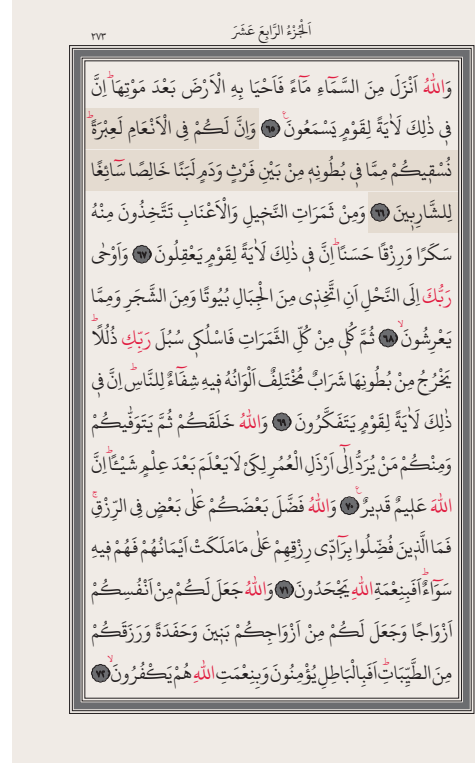 اَلْجُزْءُ الرَّابِعَ عَشَرَ
٢٧٣
وَاللّٰهُ اَنْزَلَ مِنَ السَّمَٓاءِ مَٓاءً فَاَحْيَا بِهِ الْاَرْضَ بَعْدَ مَوْتِهَاۜ اِنَّ
ف۪ي ذٰلِكَ لَاٰيَةً لِقَوْمٍ يَسْمَعُونَ۟ ﴿٦٥﴾ وَاِنَّ لَكُمْ فِي الْاَنْعَامِ لَعِبْرَةًۜ
نُسْق۪يكُمْ مِمَّا ف۪ي بُطُونِه۪ مِنْ بَيْنِ فَرْثٍ وَدَمٍ لَبَنًا خَالِصًا سَٓائِغًا
لِلشَّارِب۪ينَ ﴿٦٦﴾ وَمِنْ ثَمَرَاتِ النَّخ۪يلِ وَالْاَعْنَابِ تَتَّخِذُونَ مِنْهُ
سَكَرًا وَرِزْقًا حَسَنًاۜ اِنَّ ف۪ي ذٰلِكَ لَاٰيَةً لِقَوْمٍ يَعْقِلُونَ ﴿٦٧﴾ وَاَوْحٰى
رَبُّكَ اِلَى النَّحْلِ اَنِ اتَّخِذ۪ي مِنَ الْجِبَالِ بُيُوتًا وَمِنَ الشَّجَرِ وَمِمَّا
يَعْرِشُونَۙ ﴿٦٨﴾ ثُمَّ كُل۪ي مِنْ كُلِّ الثَّمَرَاتِ فَاسْلُك۪ي سُبُلَ رَبِّكِ ذُلُلًاۜ
يَخْرُجُ مِنْ بُطُونِهَا شَرَابٌ مُخْتَلِفٌ اَلْوَانُهُ ف۪يهِ شِفَٓاءٌ لِلنَّاسِۜ اِنَّ ف۪ي
ذٰلِكَ لَاٰيَةً لِقَوْمٍ يَتَفَكَّرُونَ ﴿٦٩﴾ وَاللّٰهُ خَلَقَكُمْ ثُمَّ يَتَوَفّٰيكُمْ
وَمِنْكُمْ مَنْ يُرَدُّ اِلٰٓى اَرْذَلِ الْعُمُرِ لِكَيْ لَا يَعْلَمَ بَعْدَ عِلْمٍ شَيْـًٔاۜ اِنَّ
اللّٰهَ عَل۪يمٌ قَد۪يرٌ۟ ﴿٧٠﴾ وَاللّٰهُ فَضَّلَ بَعْضَكُمْ عَلٰى بَعْضٍ فِي الرِّزْقِۚ
فَمَا الَّذ۪ينَ فُضِّلُوا بِرَٓادّ۪ي رِزْقِهِمْ عَلٰى مَا مَلَكَتْ اَيْمَانُهُمْ فَهُمْ ف۪يهِ
سَوَٓاءٌۜ اَفَبِنِعْمَةِ اللّٰهِ يَجْحَدُونَ ﴿٧١﴾ وَاللّٰهُ جَعَلَ لَكُمْ مِنْ اَنْفُسِكُمْ
اَزْوَاجًا وَجَعَلَ لَكُمْ مِنْ اَزْوَاجِكُمْ بَن۪ينَ وَحَفَدَةً وَرَزَقَكُمْ
مِنَ الطَّيِّبَاتِۜ اَفَبِالْبَاطِلِ يُؤْمِنُونَ وَبِنِعْمَتِ اللّٰهِ هُمْ يَكْفُرُونَۙ ﴿٧٢﴾